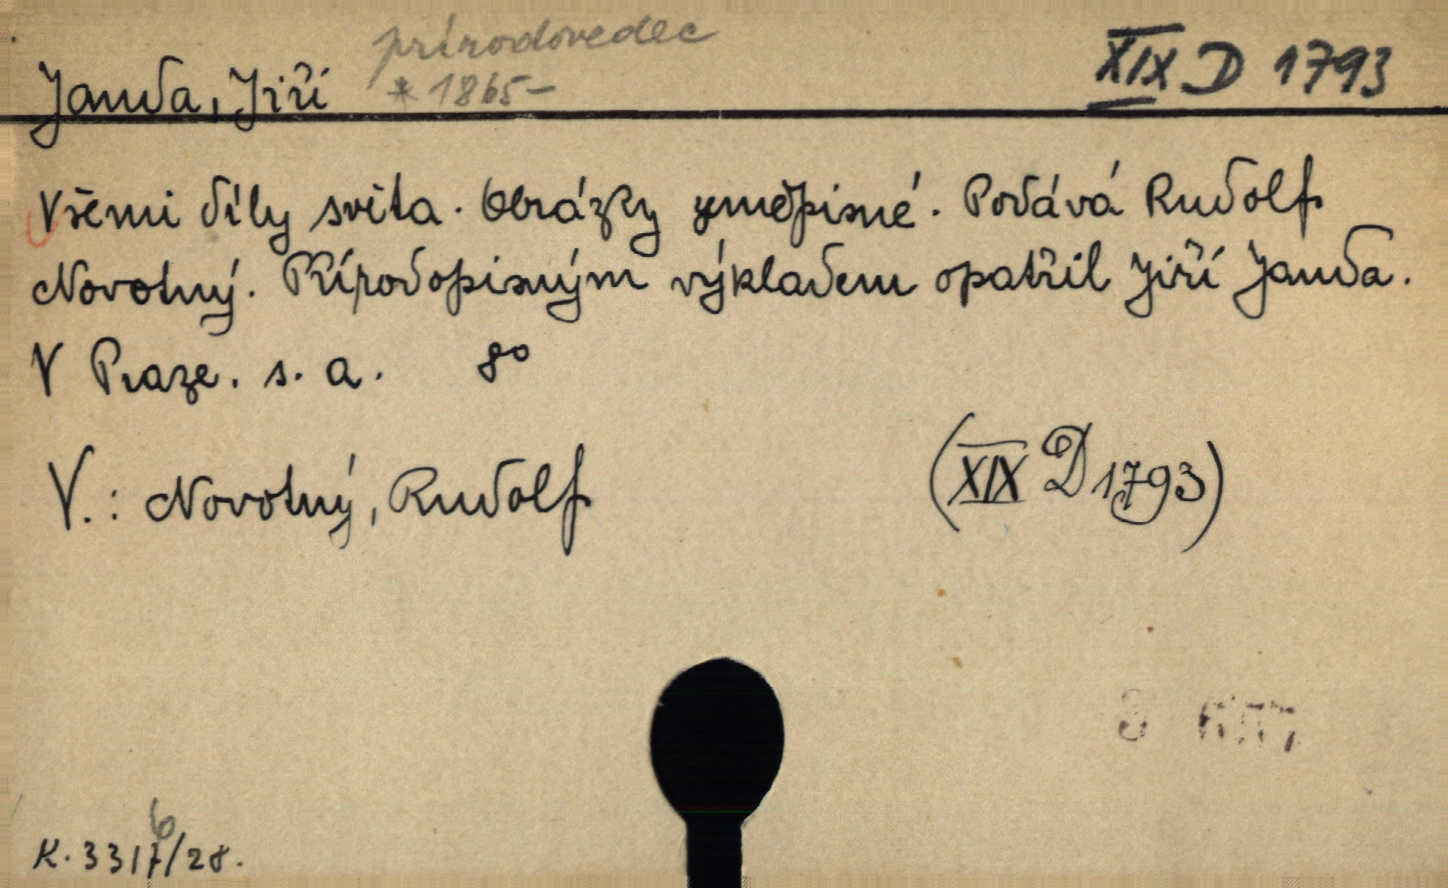 přírodovědec
Janda, Jiří * 1865- XIX D 1793
Všemi díly světa. Obrázky zeměpisné. Podává Rudolf
Novotný. Přírodopisným výkladem opatřil Jiří Janda.
V Praze. s. a. 8°
V.: Novotný, Rudolf (XIX D 1793)
6
K. 3317/28.